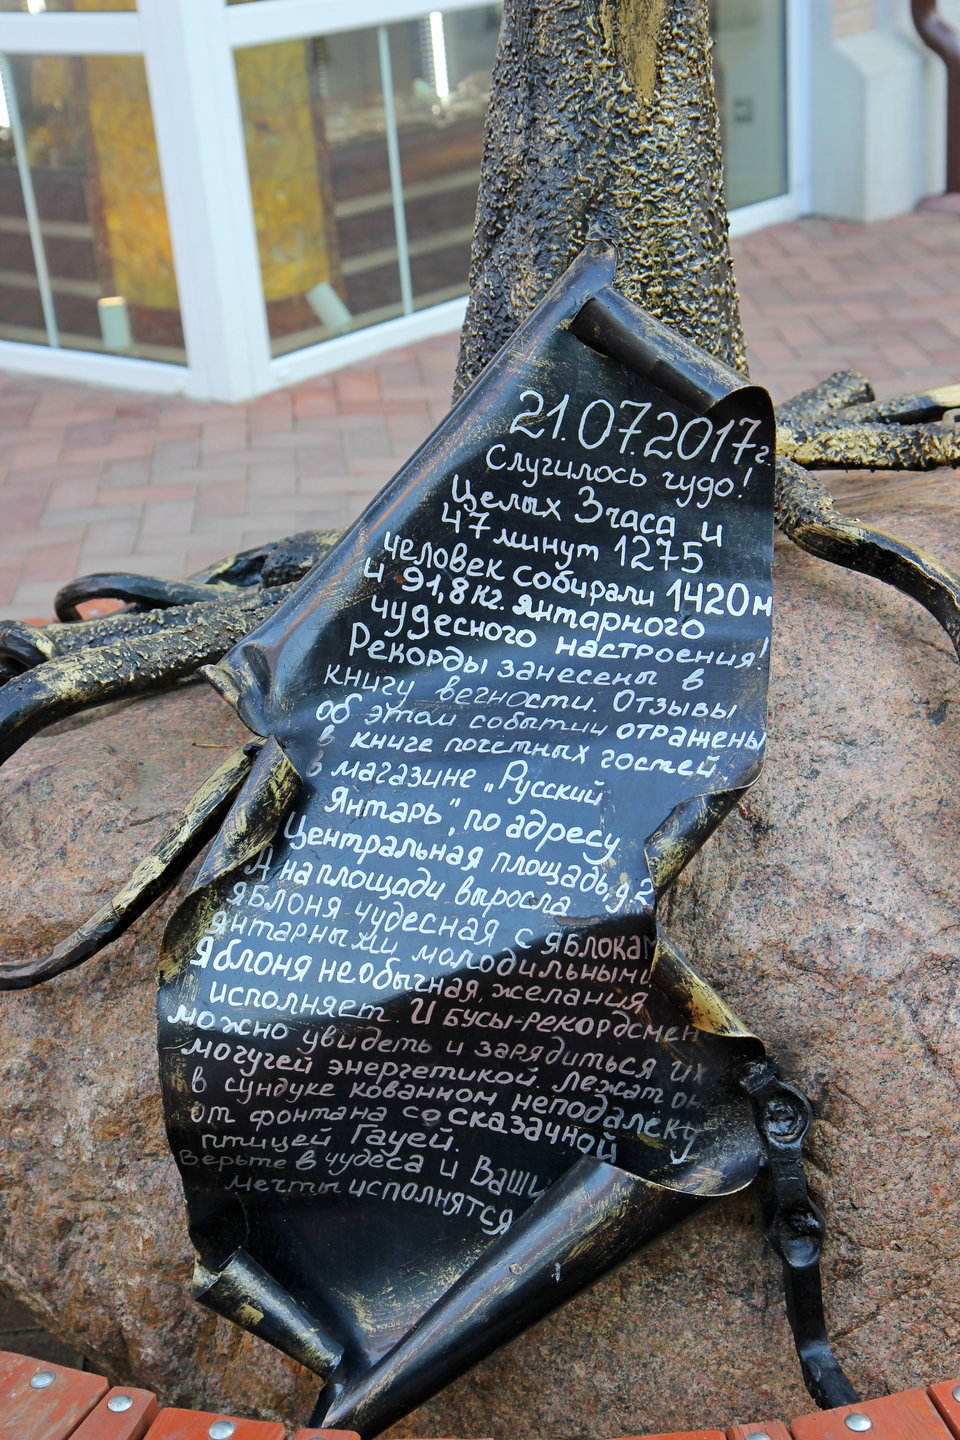 21.07.2017г.
Случилось чудо!
Целых 3 часа и
47 минут 1275
человек собирали 1420м
и 91,8 кг. янтарного
чудесного настроения!
Рекорды занесены в
книгу вечности. Отзывы
об этом событии отражены
в книге почетных гостей
в магазине „Русский
Янтарь", по адресу
Центральная площадь, д.2
А на площади выросла
яблоня чудесная с яблокам
янтарными молодильными
Яблоня необычная, желания
исполняет И бусы-рекордсмен
можно увидеть и зарядиться их
могучей энергетикой. Лежат он
в сундуке кованном неподалёку
от фонтана со сказачной
птицей Гауей.
Верьте в чудеса и Ваши
мечты исполнятся